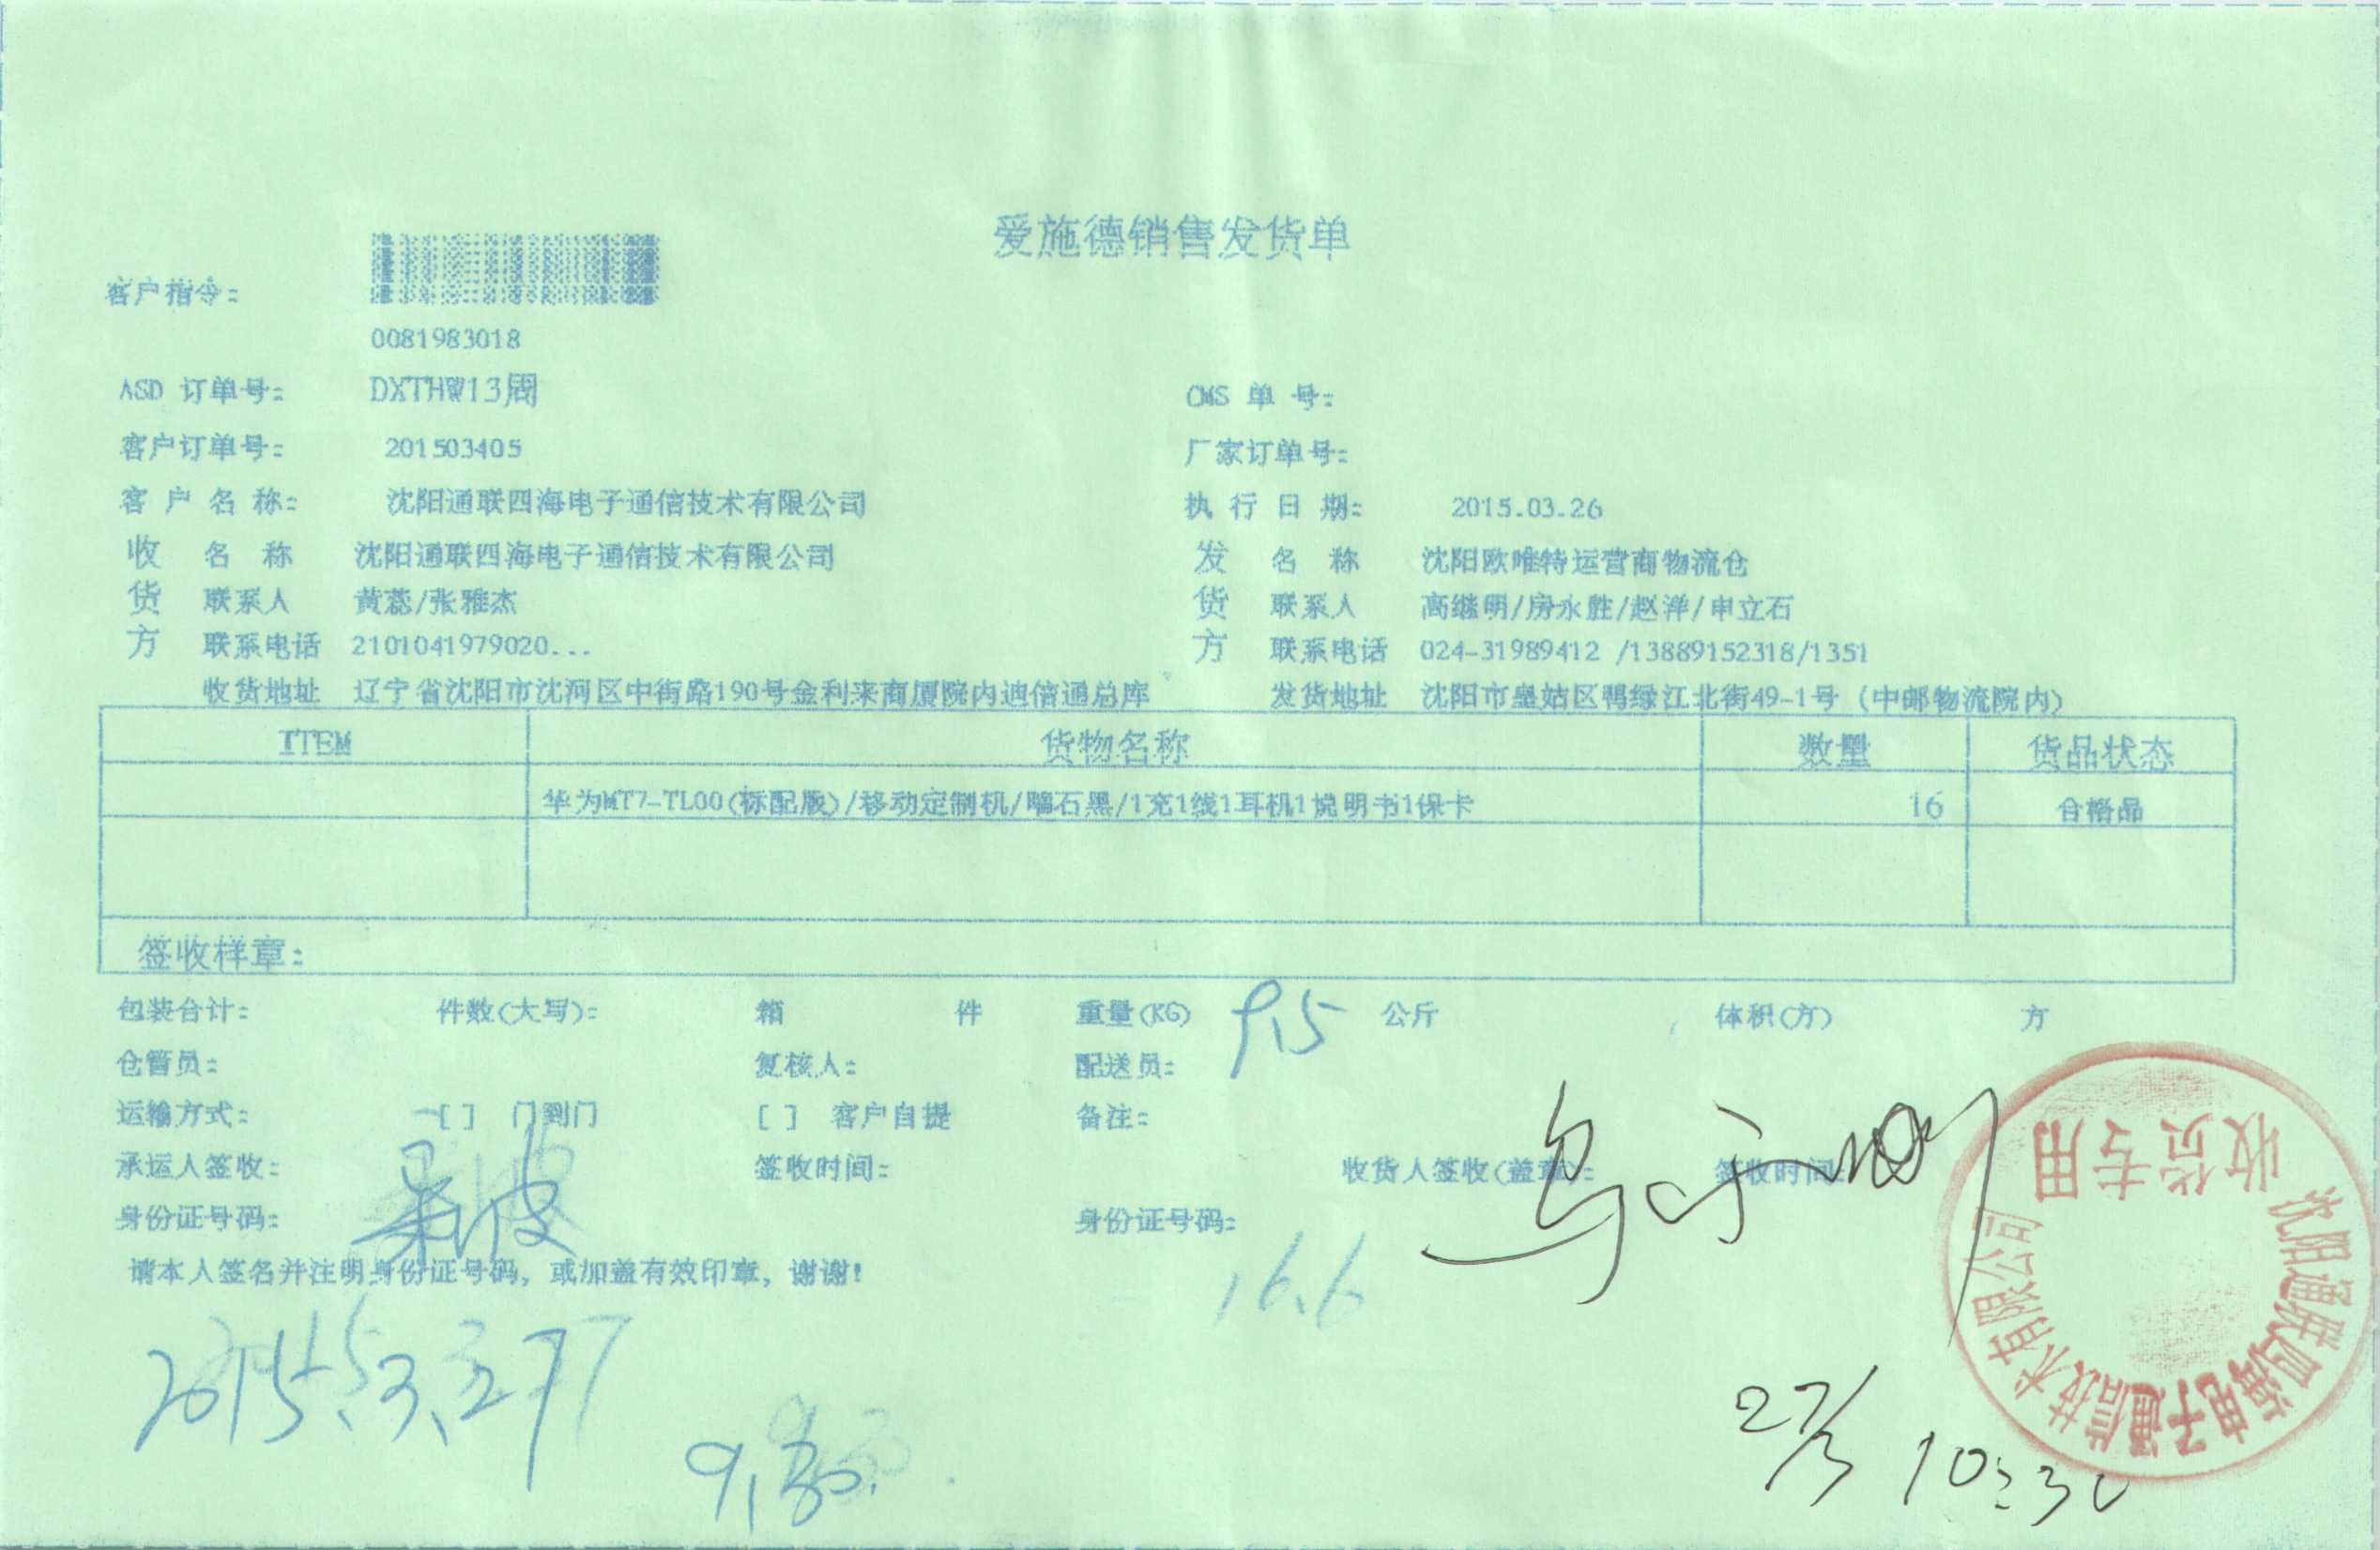 爱施德销售发货单
客户指令:
0081983018
ASD 订单号: DXTHW13周 CMS 单 号:
客户订单号: 201503405 厂家订单号:
客 户 名 称: 沈阳通联四海电子通信技术有限公司 执 行 日 期: 2015.03.26
收货方 名 称 沈阳通联四海电子通信技术有限公司 发货方 名 称 沈阳欧唯特运营商物流仓
联系人 黄蕊/张雅杰 联系人 高继明/房永胜/赵洋/申立石
联系电话 2101041979020... 联系电话 024-31989412 /13889152318/1351
收货地址 辽宁省沈阳市沈河区中街路190号金利来商厦院内迪信通总库 发货地址 沈阳市皇姑区鸭绿江北街49-1号 (中邮物流院内)
ITEM 货物名称 数量 货品状态
华为MT7-TL00(标配版)/移动定制机/曜石黑/1充1线1耳机1说明书1保卡 16 合格品
签收样章:
包装合计: 件数(大写): 箱 件 重量(KG) 9.5 公斤 体积(方) 方
仓管员: 复核人: 配送员:
运输方式: [ ] 门到门 [ ] 客户自提 备注:
承运人签收: 签收时间: 收货人签收(盖章): 签收时间:
身份证号码: 身份证号码:
请本人签名并注明身份证号码, 或加盖有效印章, 谢谢!
16.6
2015.3.27
9.30.
27/3 10:30
收货专用
沈阳通联四海电子通信技术有限公司